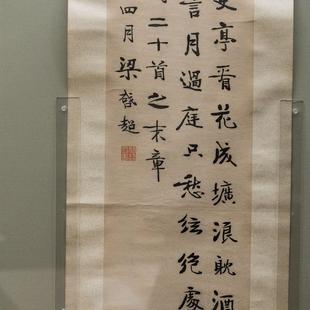 亭晋花成壙浪酖酒
言月過庭只愁弦绝處
二十首之末章
四月梁啓超